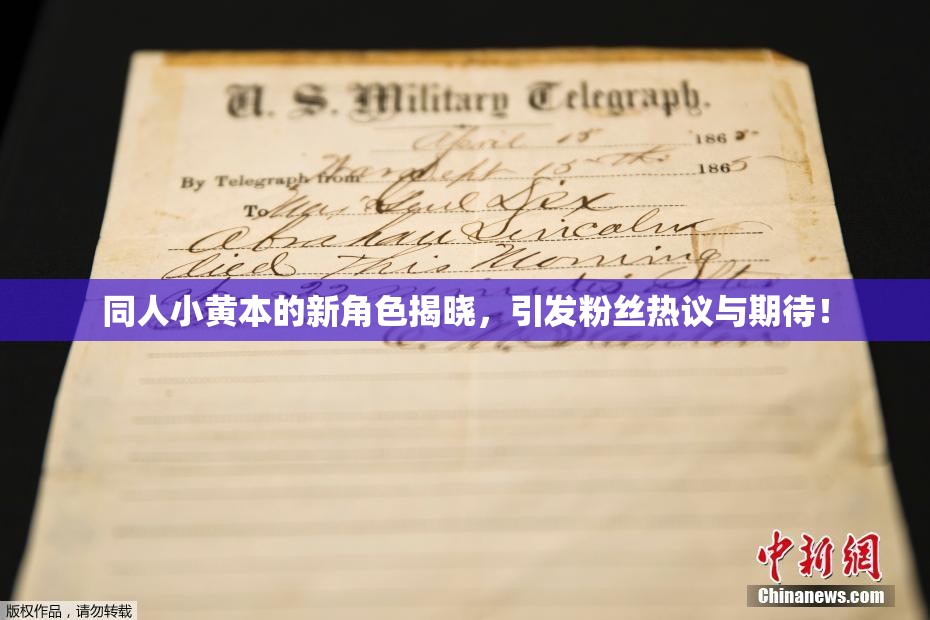 U. S. Military Telegraph.
April 15 1865
By Telegraph from War Dept 15th 1865
To Maj Genl Dix
Abraham Lincoln
died This Morning
22 minutes after
同人小黄本的新角色揭晓，引发粉丝热议与期待！
中新網
Chinanews.com
版权作品，请勿转载